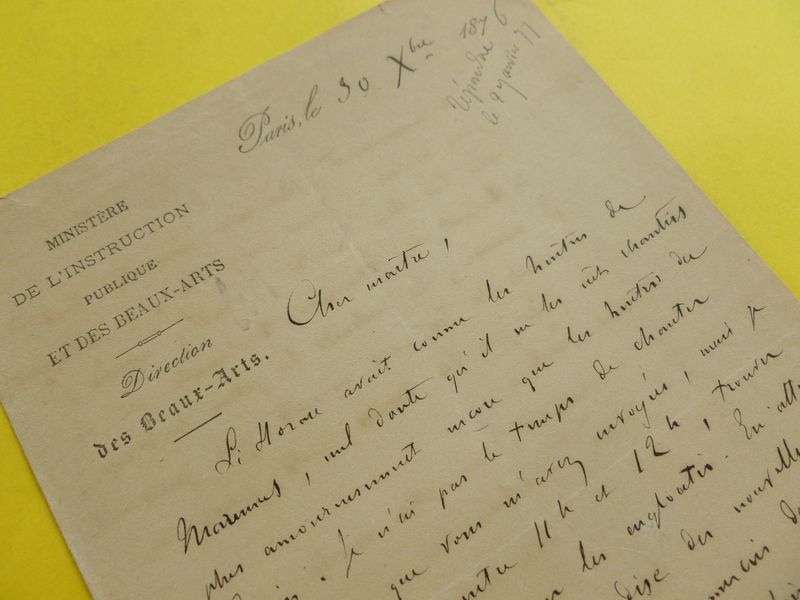 Paris, le 30 Xbre 1876
répondre
le 2 janvier 77
MINISTÈRE
DE L'INSTRUCTION
PUBLIQUE
ET DES BEAUX-ARTS
Direction
des Beaux-Arts.
Cher maître,
Si Horace avait connu les huîtres de
Marennes, nul doute qu'il ne les eût chantées
plus amoureusement encore que les huîtres du
Je n'ai pas le temps de chanter
que vous m'avez envoyées, mais je
entre 11h et 12h, trouver
les engloutir. En att
dise des nouvelle